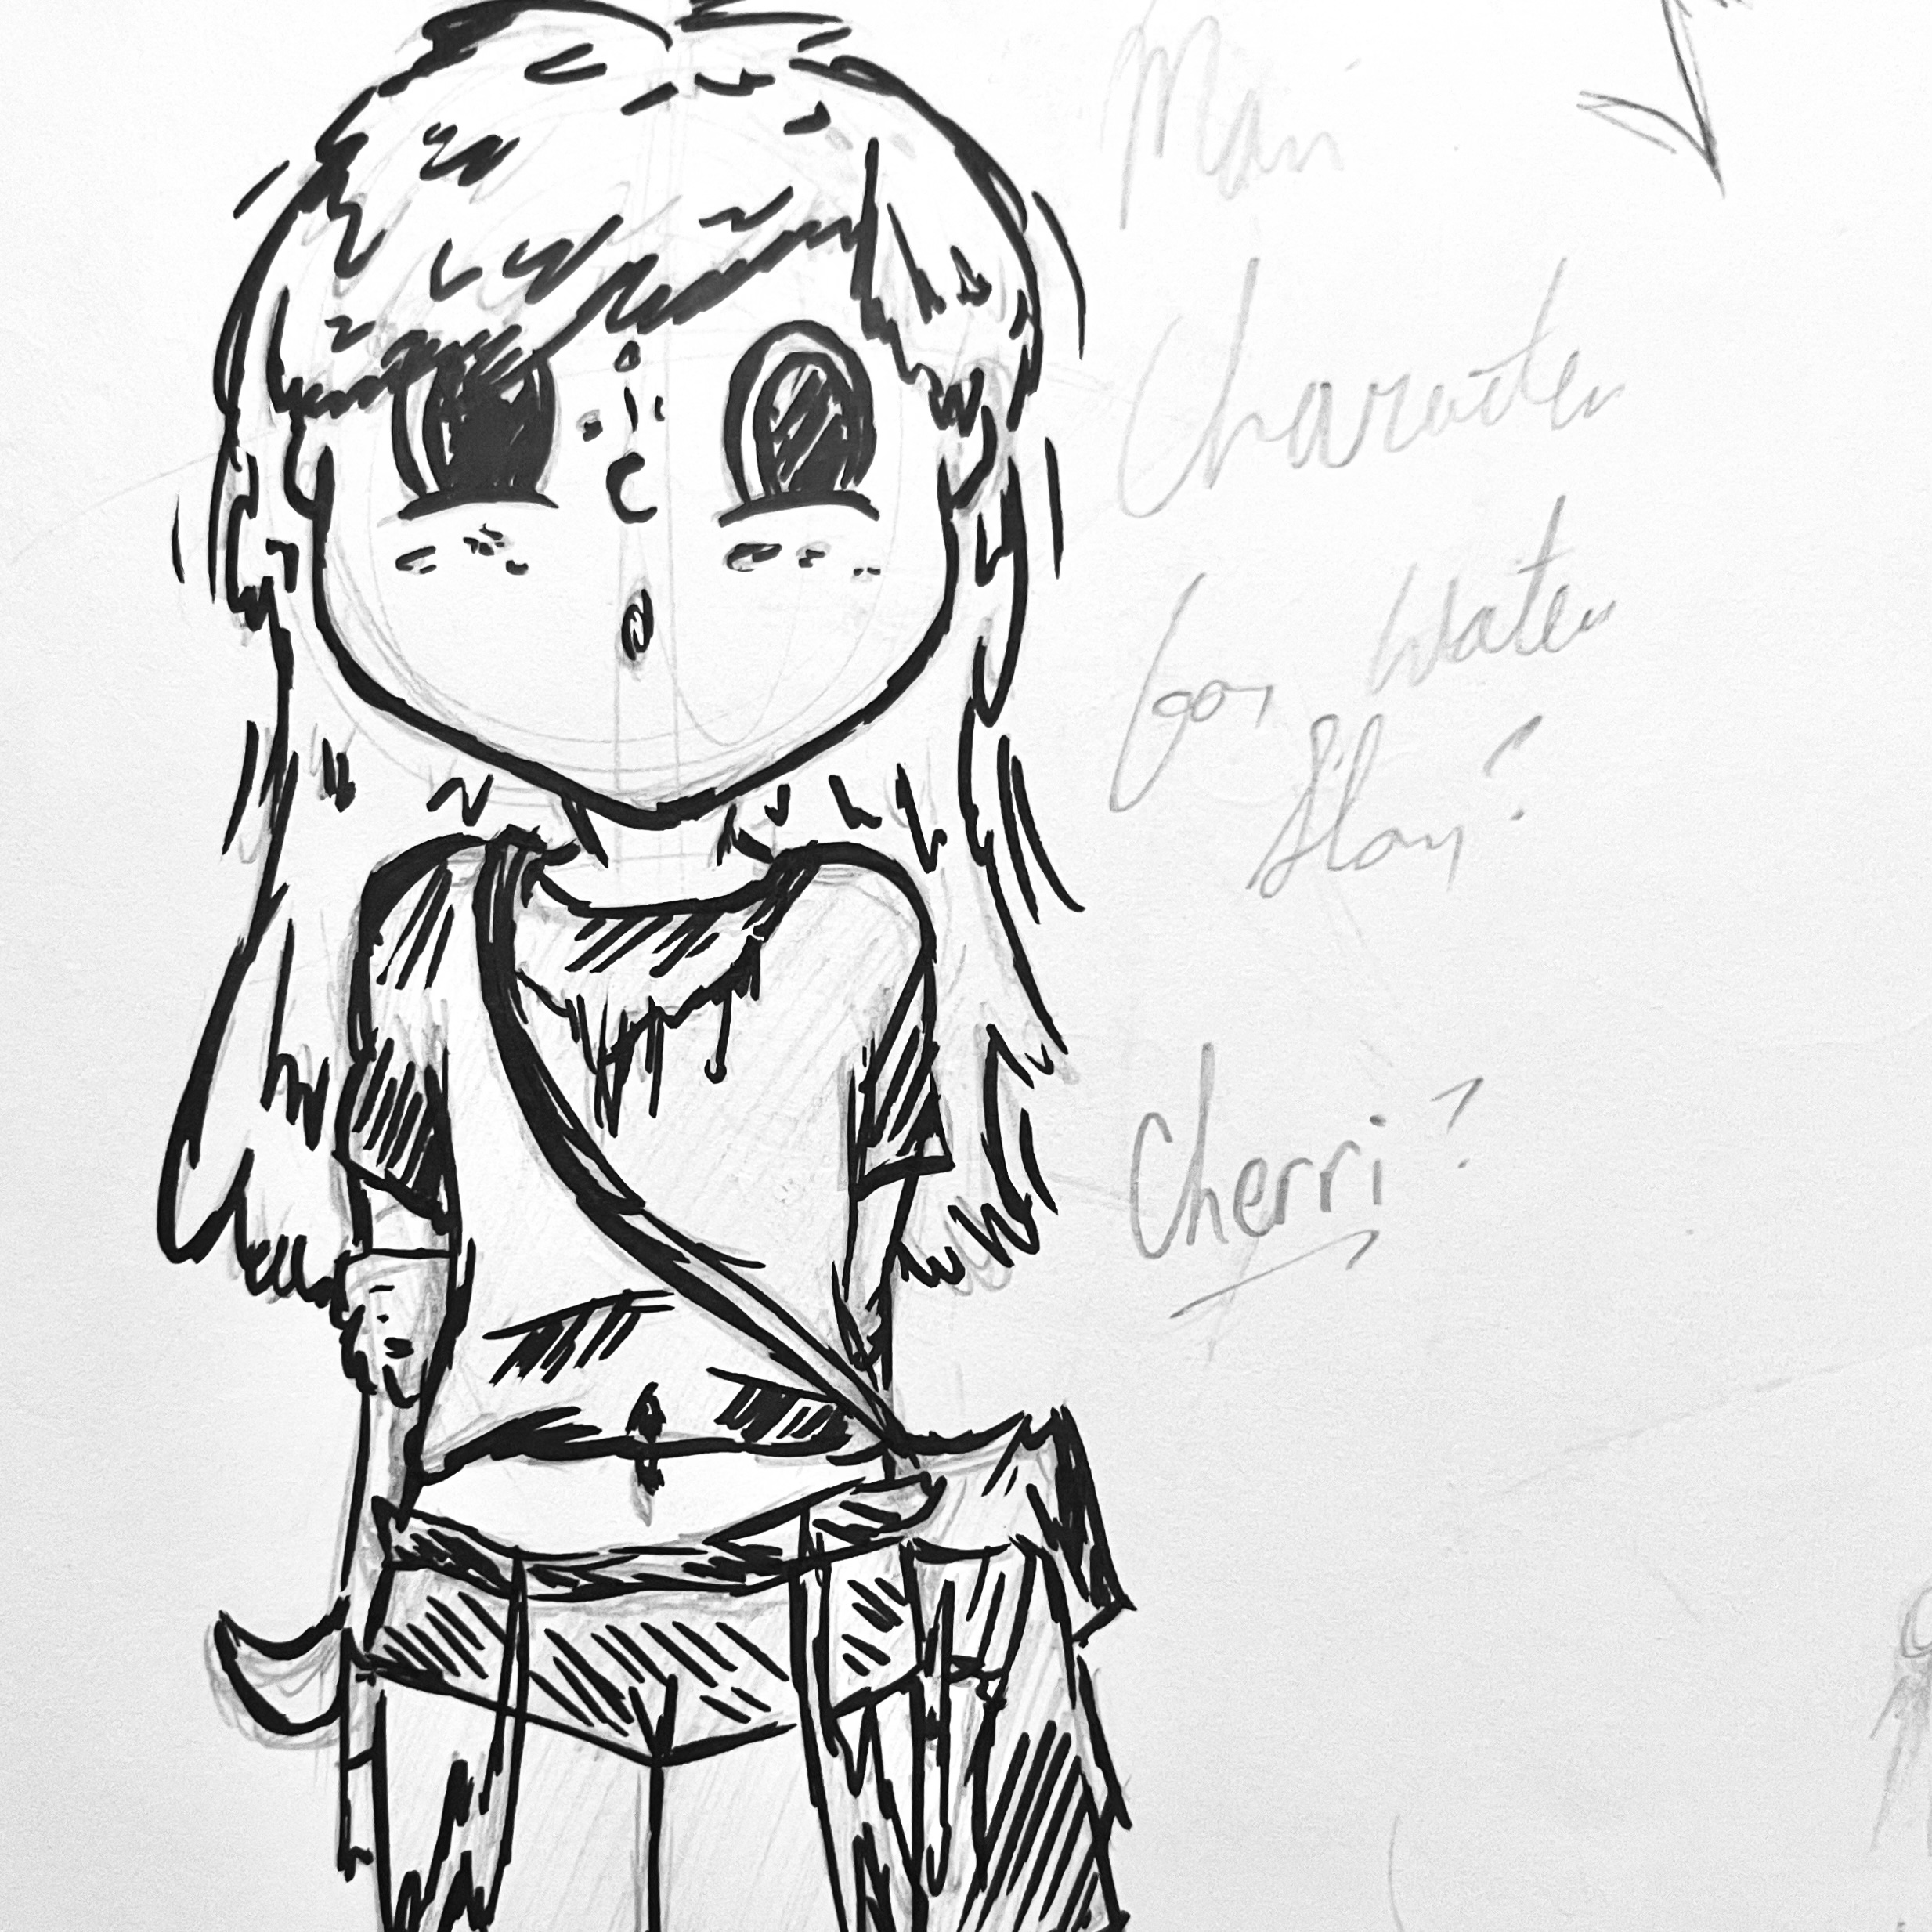 Main
Character
for Water
Slay?
Cherri?